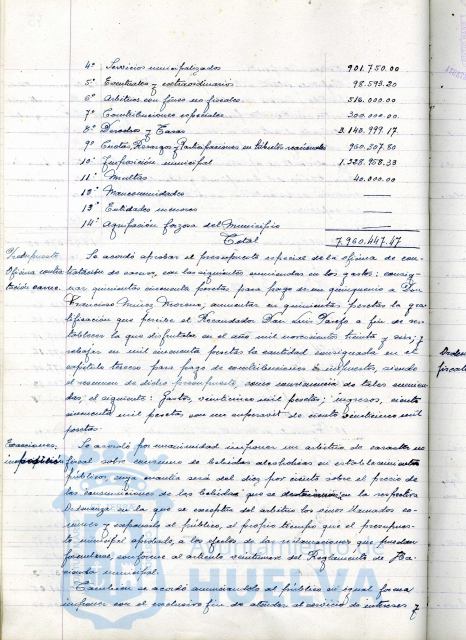 4º Servicios municipalizados 901.750.00
5º Eventuales y extraordinarios 98.593.20
6º Arbitrios con fines no fiscales 516.000.00
7º Contribuciones especiales 300.000.00
8º Derechos y Tasas 3.140.999.17
9º Cuotas Recargos y Participaciones en tributos nacionales 950.507.80
10º Imposición municipal 1.328.958.33
11º Multas 40.000.00
12º Mancomunidades
13º Entidades menores
14º Agrupación forzosa del Municipio
Total 7.960.447.47
Presupuesto Se acordó aprobar el presupuesto especial de la oficina de con-
Oficina contra tratación de carnes, con las siguientes enmiendas en los gastos: consig-
tación carnes. nar quinientas cincuenta pesetas para pago de un quinquenio a Don
Francisco Muñoz Morena, aumentar en quinientas pesetas la gra-
tificación que percibe el Recaudador Don Luis a fin de res-
tablecer la que disfrutaba en el año mil novecientos treinta y seis, y
rebajar en mil cincuenta pesetas la cantidad consignada en el
capítulo tercero para pago de contribuciones e impuestos, siendo
el resumen de dicho presupuesto, como consecuencia de tales enmien-
das, el siguiente: Gastos, veinticinco mil pesetas; ingresos, ciento
cincuenta mil pesetas, con un superavit de ciento veinticinco mil
pesetas
Exacciones. Se acordó por unanimidad imponer un arbitrio de caracter no
imposición fiscal sobre consumo de bebidas alcoholicas en establecimientos
públicos, cuya cuantía será del diez por ciento sobre el precio de
las consumiciones de las bebidas que se en la respectiva
Ordenanza en la que se exceptúa del arbitrio los vinos llamados co-
rrientes y exponerlo al público, al propio tiempo que el presupues-
to municipal aprobado, a los efectos de las reclamaciones que puedan
formularse, conforme al artículo del Reglamento de Ha-
cienda municipal.
Tambien se acordó anunciandolo al público en igual forma
imponer con el exclusivo fin de atender al servicio de intereses y
Orden
fiscal
HUELVA